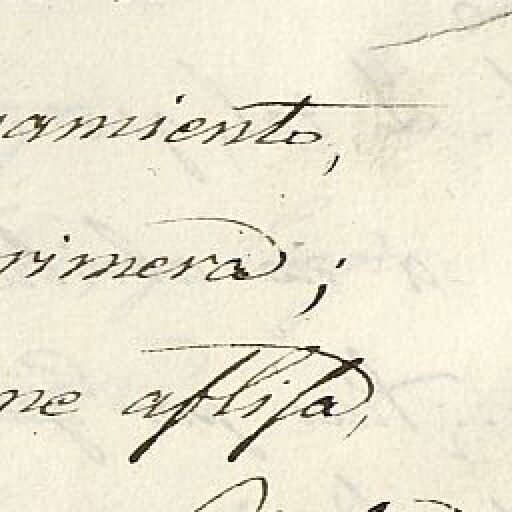 amiento,
rimera;
me aflija,